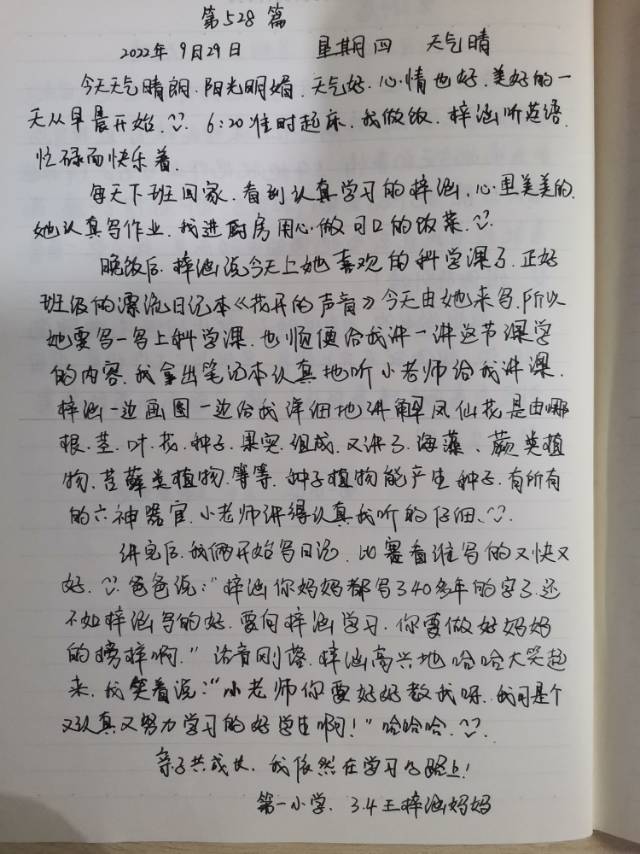 第528篇
2022年9月29日 星期四 天气晴
今天天气晴朗.阳光明媚.天气好.心情也好.美好的一
天从早晨开始. 6:20准时起床.我做饭.梓涵听英语.
忙碌而快乐着.
每天下班回家.看到认真学习的梓涵.心里美美的.
她认真写作业.我进厨房用心做可口的饭菜.
晚饭后.梓涵说今天上她喜欢的科学课了.正好
班级的漂流日记本《花开的声音》今天由她来写.所以
她要写一写上科学课.也顺便给我讲一讲这节课学
的内容.我拿出笔记本认真地听小老师给我讲课.
梓涵一边画图一边给我详细地讲解凤仙花是由哪
根.茎.叶.花.种子.果实.组成.又讲了海藻、蕨类植
物.苔藓类植物.等等.种子植物能产生种子.有所有
的六神器官.小老师讲得认真我听的仔细.
讲完后.我俩开始写日记.比赛看谁写的又快又
好.爸爸说:“梓涵你妈妈都写了40多年的字了.还
不如梓涵写的好.要向梓涵学习.你要做好妈妈
的榜样啊.”话音刚落.梓涵高兴地哈哈大笑起
来.我笑着说:“小老师你要好好教我呀.我可是个
又认真又努力学习的好学生啊!”哈哈哈.
亲子共成长.我依然在学习的路上!
第一小学.3.4王梓涵妈妈